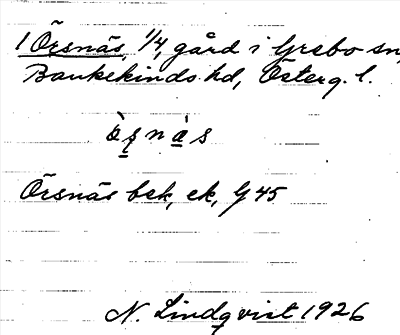 1 Örsnäs, 1/4, gård i Grebo sn,
Bankekinds hd, Österg. l.
ò̤s̤nàs
Örsnäs bek, ek, G 45
N. Lindqvist 1926